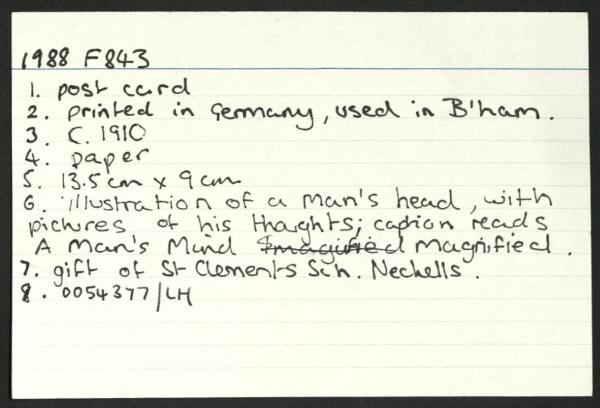 1988 F843
1. post card
2. printed in Germany, used in B'ham.
3. C. 1910
4. paper
5. 13.5cm x 9cm
6. illustration of a man's head, with
pictures of his thoughts; caption reads
A Man's Mind Imagified magnified.
7. gift of St Clements Sch. Nechells.
8. 0054377/LH